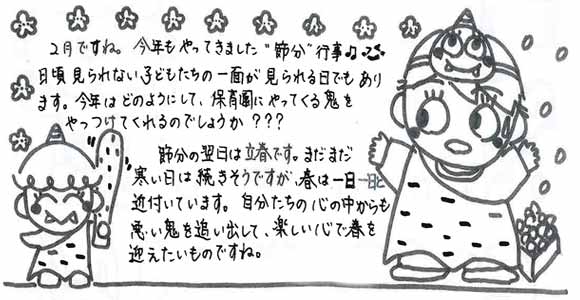 2月ですね。今年もやってきました"節分"行事♪
日頃見られない子どもたちの一面が見られる日でもあり
ます。今年はどのようにして、保育園にやってくる鬼を
やっつけてくれるのでしょうか???
節分の翌日は立春です。まだまだ
寒い日は続きそうですが、春は一日一日と
近付いています。自分たちの心の中からも
悪い鬼を追い出して、楽しい心で春を
迎えたいものですね。